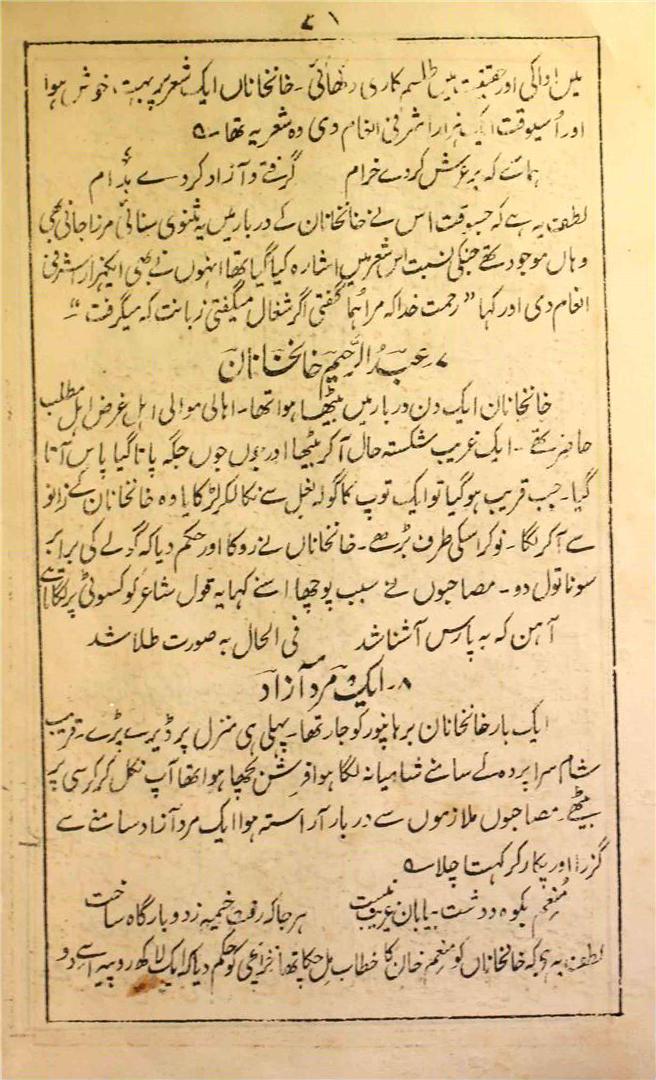 ۴۱
میں ادا کی اور حقیقت میں طلسم کاری دکھائی۔ خانخاناں ایک شعر پر بہت خوش ہوا
اور اُسیوقت ایک ہزار اشرفی انعام دی وہ شعر یہ تھا۔
ہمائے کہ بر عرش کردے خرام گرفتے و آزاد کردے بدام
لطف یہ ہے کہ جسوقت اس نے خانخانان کے دربار میں یہ مثنوی سنائی مرزا جانی بھی
وہاں موجود تھے جنکی نسبت اس شعر میں اشارہ کیا گیا تھا انہوں نے بھی ایکہزار اشرفی
انعام دی اور کہا ”رحمت خدا کہ مرا ہما گفتی اگر شغال میگفتی زبانت کہ میگرفت“
۷۔ عبدُ الرَّحیم خانخانان
خانخانان ایک دن دربار میں بیٹھا ہوا تھا۔ اہالی موالی اہل غرض اہل مطلب
حاضر تھے۔ ایک غریب شکستہ حال آکر بیٹھا اور جوں جوں جگہ پاتا گیا پاس آتا
گیا۔ جب قریب ہوگیا تو ایک توپ کا گولہ بغل سے نکالکر لڑکایا وہ خانخانان کے زانو
سے آکر لگا۔ نوکر اسکی طرف بڑھے۔ خانخاناں نے روکا اور حکم دیا کہ گولے کی برابر
سونا تول دو۔ مصاحبوں نے سبب پوچھا اسنے کہا یہ قول شاعر کو کسوٹی پر لگاتا ہے
آہن کہ بہ پارس آشنا شد فی الحال بہ صورت طلا شد
۸۔ ایک مرد آزاد
ایک بار خانخانان برہانپور کو جارہا تھا۔ پہلی ہی منزل پر ڈیرے پڑے۔ قریب
شام سراپردہ کے سامنے شامیانہ لگا ہوا فرش بچھا ہوا تھا آپ نکل کر کرسی پر
بیٹھے۔ مصاحبوں ملازموں سے دربار آراستہ ہوا ایک مرد آزاد سامنے سے
گزرا اور پکار کر کہتا چلا
مُنعم بکوہ و دشت و بیابان غریب نیست ہرجا کہ رفت خیمہ زد و بارگاہ ساخت
لطف یہ ہے کہ خانخاناں کو منعم خان کا خطاب مل چکا تھا خزانچی کو حکم دیا کہ ایک لاکھ روپیہ اسے دو